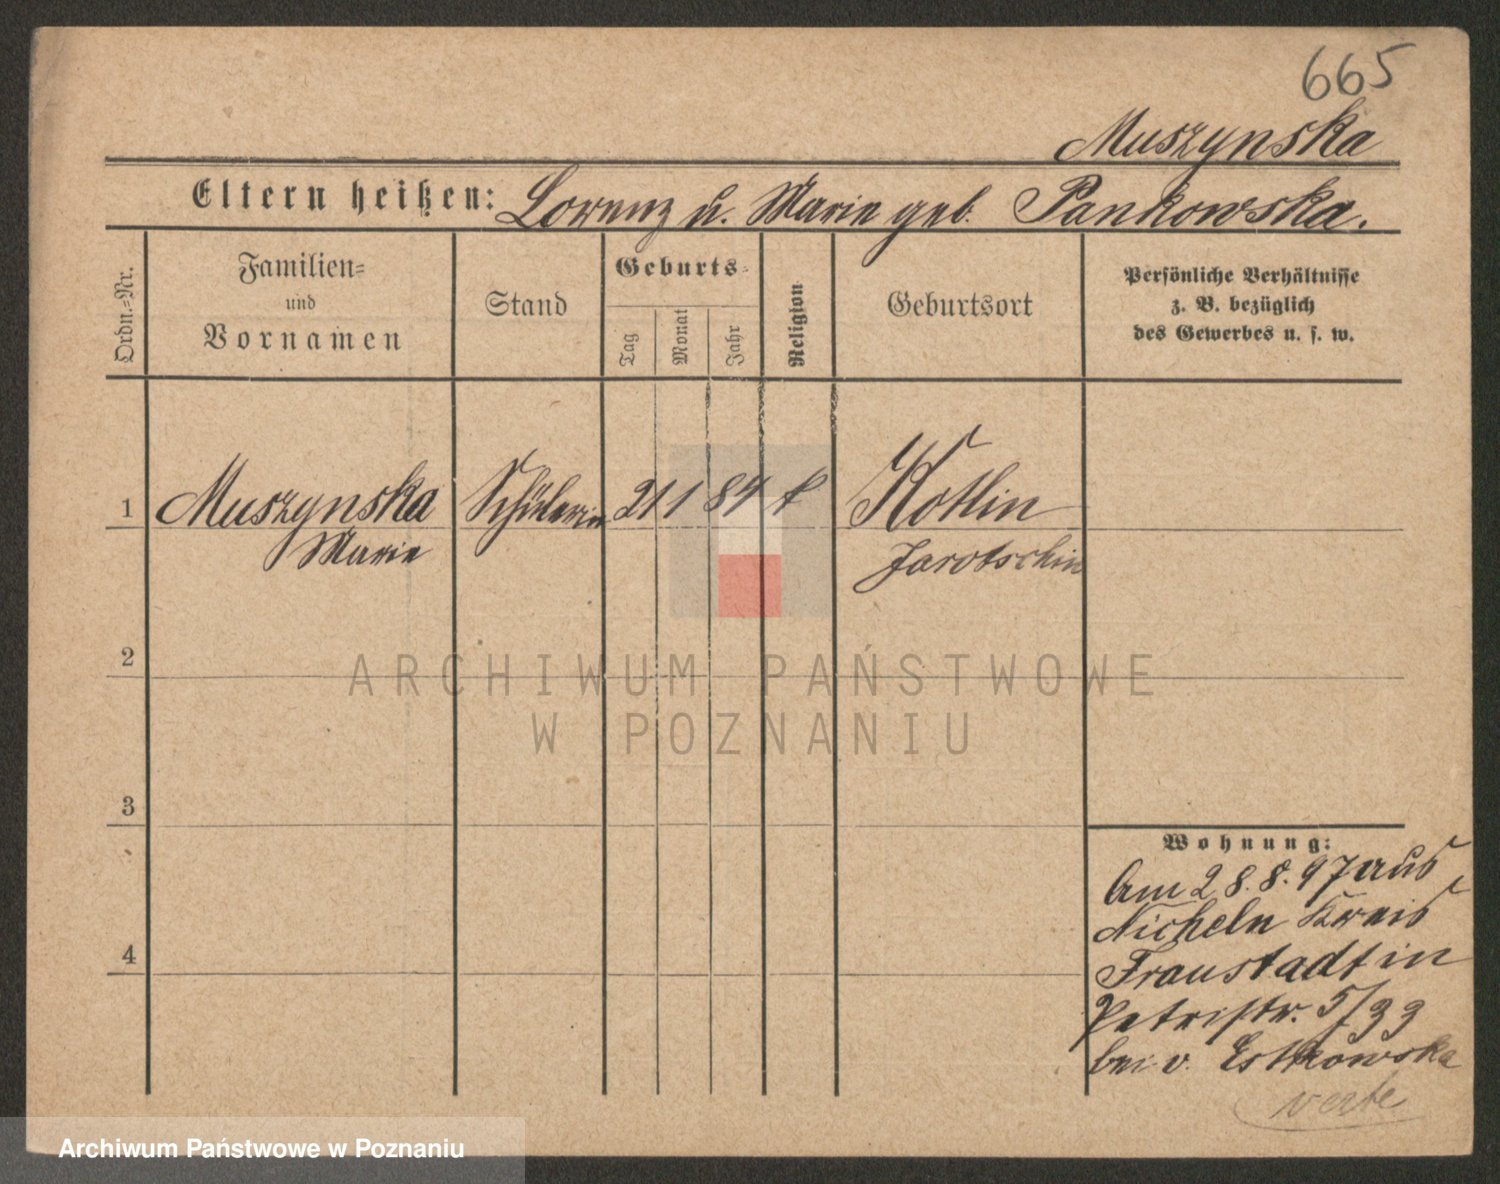 665
Muszynska
Eltern heißen: Lorenz u. Marie geb. Pankowska.
Ordn.=Nr.
Familien=
und
Vornamen
Stand
Geburts=
Tag
Monat
Jahr
Religion
Geburtsort
Persönliche Verhältnisse
z. B. bezüglich
des Gewerbes u. s. w.
1 Muszynska Schülerin 21 1 84 k Kotlin
Marie Jarotschin
2
ARCHIWUM PAŃSTWOWE
W POZNANIU
3
Wohnung:
Am 28.8.97 aus
Nicheln Kreis
4
Fraustadt in
Petristr. 5/
bei v. Estkowska
verte
Archiwum Państwowe w Poznaniu